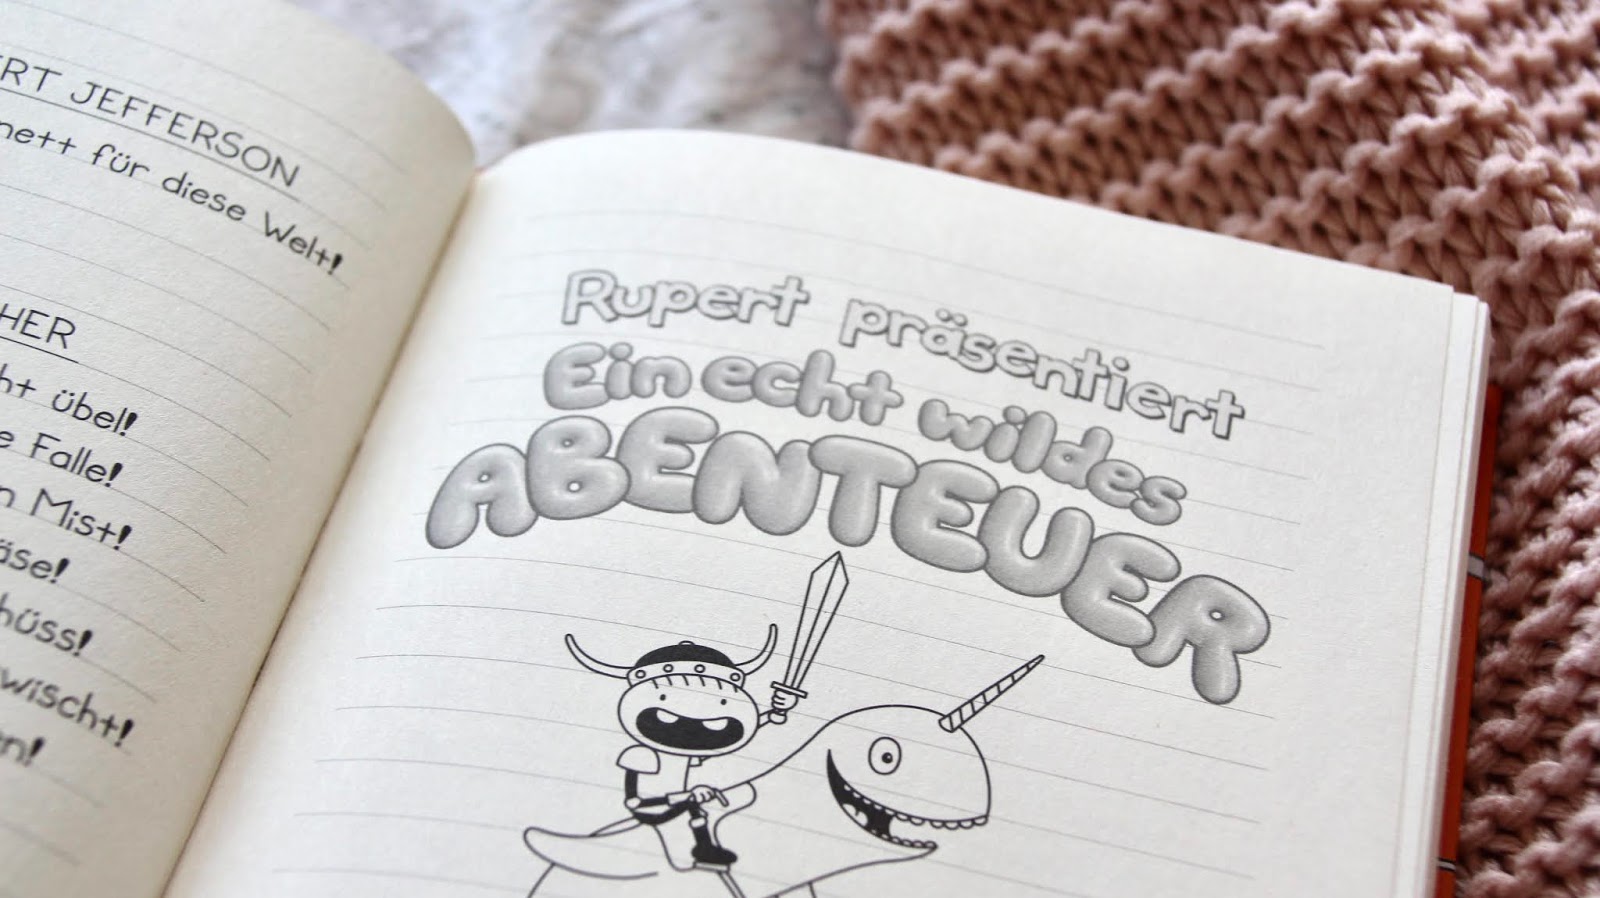 ERT JEFFERSON
nett für diese Welt!
HER
ht übel!
e Falle!
n Mist!
äse!
hüss!
wischt!
en!
Rupert präsentiert
Ein echt wildes
ABENTEUER